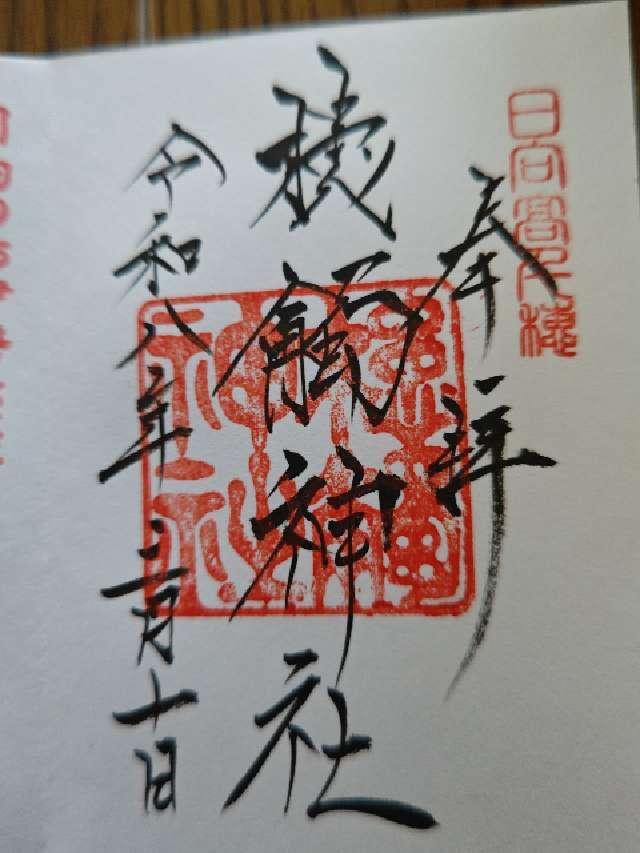 日向高千穂
奉拝
槵觸神社
令和八年二月十日